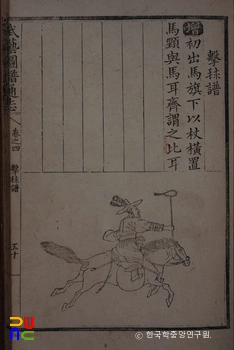 擊毬譜
增初出馬旗下以杖橫置
馬頸與馬耳齊謂之比耳
武藝圖譜通志
卷之四
擊毬譜
五十
ⓒ 한국학중앙연구원.